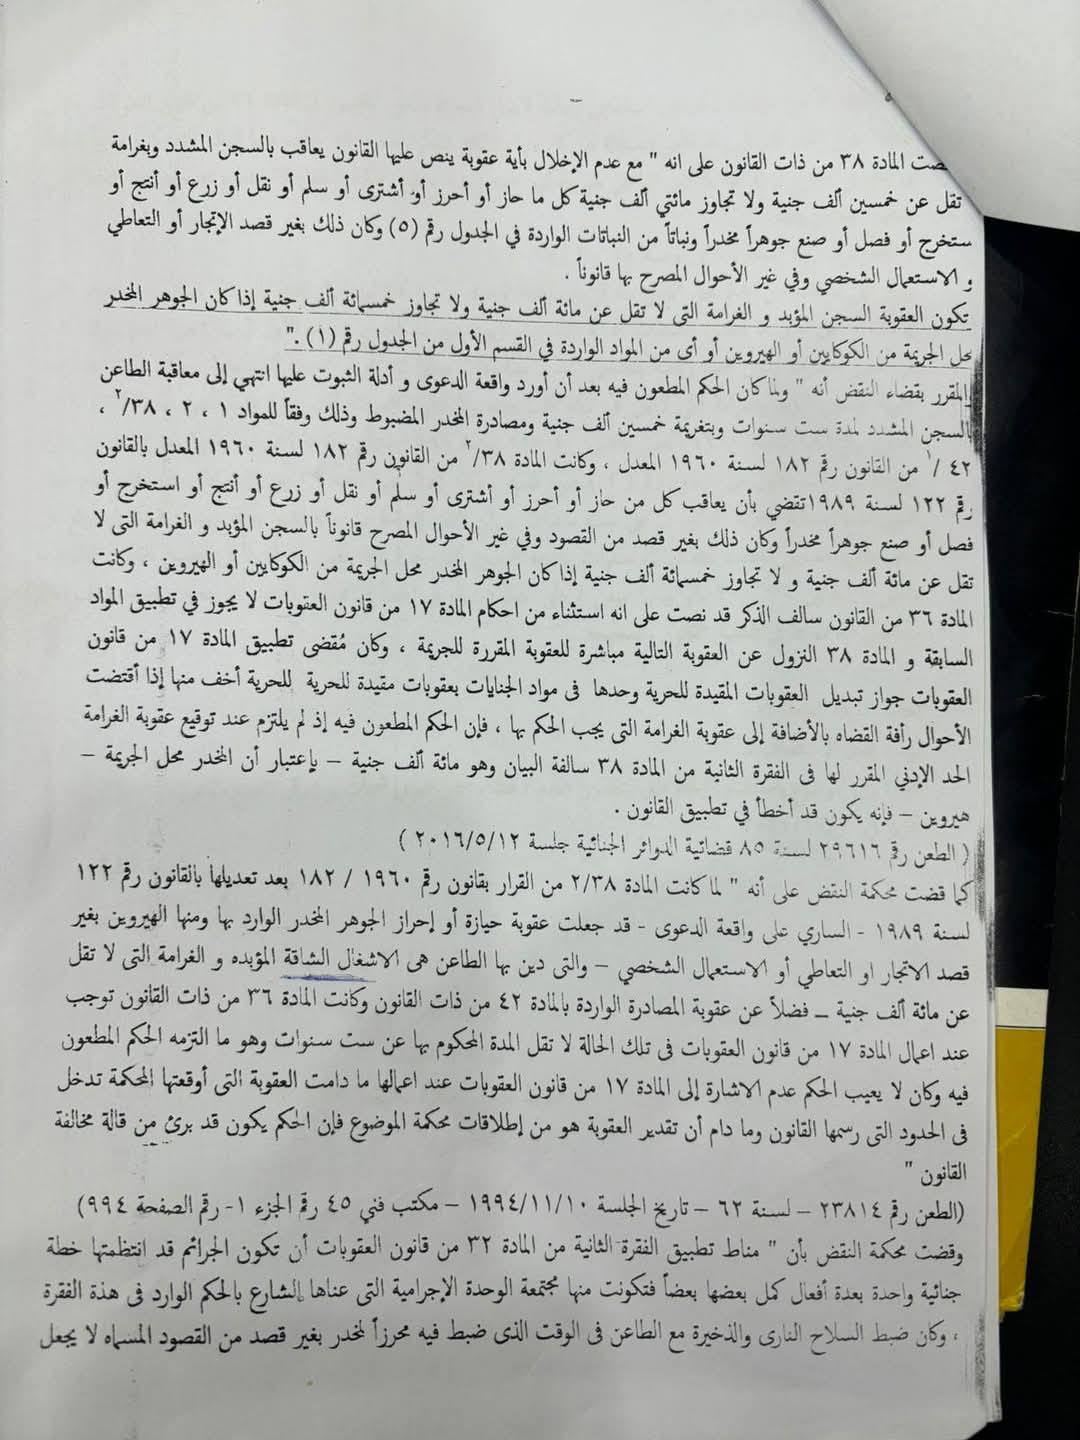 المادة ٣٨ من ذات القانون على انه " مع عدم الإخلال بأية عقوبة ينص عليها القانون يعاقب بالسجن المشدد وبغرامة
تقل عن خمسين ألف جنية ولا تجاوز مائتي ألف جنية كل ما حاز أو أحرز أو أشترى أو سلم أو نقل أو زرع أو أنتج أو
ستخرج أو فصل أو صنع جوهراً مخدراً ونباتاً من النباتات الواردة في الجدول رقم (٥) وكان ذلك بغير قصد الإتجار أو التعاطي
و الاستعمال الشخصي وفي غير الأحوال المصرح بها قانوناً .
تكون العقوبة السجن المؤبد و الغرامة التى لا تقل عن مائة ألف جنية ولا تجاوز خمسمائة ألف جنية إذا كان الجوهر المخدر
محل الجريمة من الكوكايين أو الهيروين أو أى من المواد الواردة في القسم الأول من الجدول رقم (١) ."
المقرر بقضاء النقض أنه " ولما كان الحكم المطعون فيه بعد أن أورد واقعة الدعوى و أدلة الثبوت عليها انتهي إلى معاقبة الطاعن
بالسجن المشدد لمدة ست سنوات وبتغريمة خمسين ألف جنية ومصادرة المخدر المضبوط وذلك وفقاً للمواد ١ ، ٢ ، ٣٨/٢ ،
٤٢ /١ من القانون رقم ١٨٢ لسنة ١٩٦٠ المعدل ، وكانت المادة ٣٨/٢ من القانون رقم ١٨٢ لسنة ١٩٦٠ المعدل بالقانون
رقم ١٢٢ لسنة ١٩٨٩ تقضي بأن يعاقب كل من حاز أو أحرز أو أشترى أو سلم أو نقل أو زرع أو أنتج أو استخرج أو
فصل أو صنع جوهراً مخدراً وكان ذلك بغير قصد من القصود وفي غير الأحوال المصرح قانوناً بالسجن المؤبد و الغرامة التى لا
تقل عن مائة ألف جنية و لا تجاوز خمسمائة ألف جنية إذا كان الجوهر المخدر محل الجريمة من الكوكايين أو الهيروين ، وكانت
المادة ٣٦ من القانون سالف الذكر قد نصت على انه استثناء من احكام المادة ١٧ من قانون العقوبات لا يجوز في تطبيق المواد
السابقة و المادة ٣٨ النزول عن العقوبة التالية مباشرة للعقوبة المقررة للجريمة ، وكان مُقضى تطبيق المادة ١٧ من قانون
العقوبات جواز تبديل العقوبات المقيدة للحرية وحدها فى مواد الجنايات بعقوبات مقيدة للحرية للحرية أخف منها إذا أقتضت
الأحوال رأفة القضاه بالأضافة إلى عقوبة الغرامة التى يجب الحكم بها ، فإن الحكم المطعون فيه إذ لم يلتزم عند توقيع عقوبة الغرامة
الحد الإدني المقرر لها فى الفقرة الثانية من المادة ٣٨ سالفة البيان وهو مائة ألف جنية – بإعتبار أن المخدر محل الجريمة –
هيروين – فإنه يكون قد أخطأ في تطبيق القانون .
( الطعن رقم ٢٩٦١٦ لسنة ٨٥ قضائية الدوائر الجنائية جلسة ٢٠١٦/٥/١٢ )
كما قضت محكمة النقض على أنه " لما كانت المادة ٢/٣٨ من القرار بقانون رقم ١٩٦٠ / ١٨٢ بعد تعديلها بالقانون رقم ١٢٢
لسنة ١٩٨٩ - الساري على واقعة الدعوى - قد جعلت عقوبة حيازة أو إحراز الجوهر المخدر الوارد بها ومنها الهيروين بغير
قصد الاتجار او التعاطي أو الاستعمال الشخصي – والتى دين بها الطاعن هى الاشغال الشاقة المؤبده و الغرامة التى لا تقل
عن مائة ألف جنية – فضلاً عن عقوبة المصادرة الواردة بالمادة ٤٢ من ذات القانون وكانت المادة ٣٦ من ذات القانون توجب
عند اعمال المادة ١٧ من قانون العقوبات فى تلك الحالة لا تقل المدة المحكوم بها عن ست سنوات وهو ما التزمه الحكم المطعون
فيه وكان لا يعيب الحكم عدم الاشارة إلى المادة ١٧ من قانون العقوبات عند اعمالها ما دامت العقوبة التى أوقعتها المحكمة تدخل
فى الحدود التى رسمها القانون وما دام أن تقدير العقوبة هو من إطلاقات محكمة الموضوع فإن الحكم يكون قد برئ من قالة مخالفة
القانون "
(الطعن رقم ٢٣٨١٤ – لسنة ٦٢ – تاريخ الجلسة ١٩٩٤/١١/١٠ – مكتب فني ٤٥ رقم الجزء ١- رقم الصفحة ٩٩٤)
وقضت محكمة النقض بأن " مناط تطبيق الفقرة الثانية من المادة ٣٢ من قانون العقوبات أن تكون الجرائم قد انتظمتها خطة
جنائية واحدة بعدة أفعال كمل بعضها بعضاً فتكونت منها مجتمعة الوحدة الإجرامية التى عناها الشارع بالحكم الوارد فى هذة الفقرة
، وكان ضبط السلاح النارى والذخيرة مع الطاعن فى الوقت الذى ضبط فيه محرزاً لمخدر بغير قصد من القصود المسماه لا يجعل